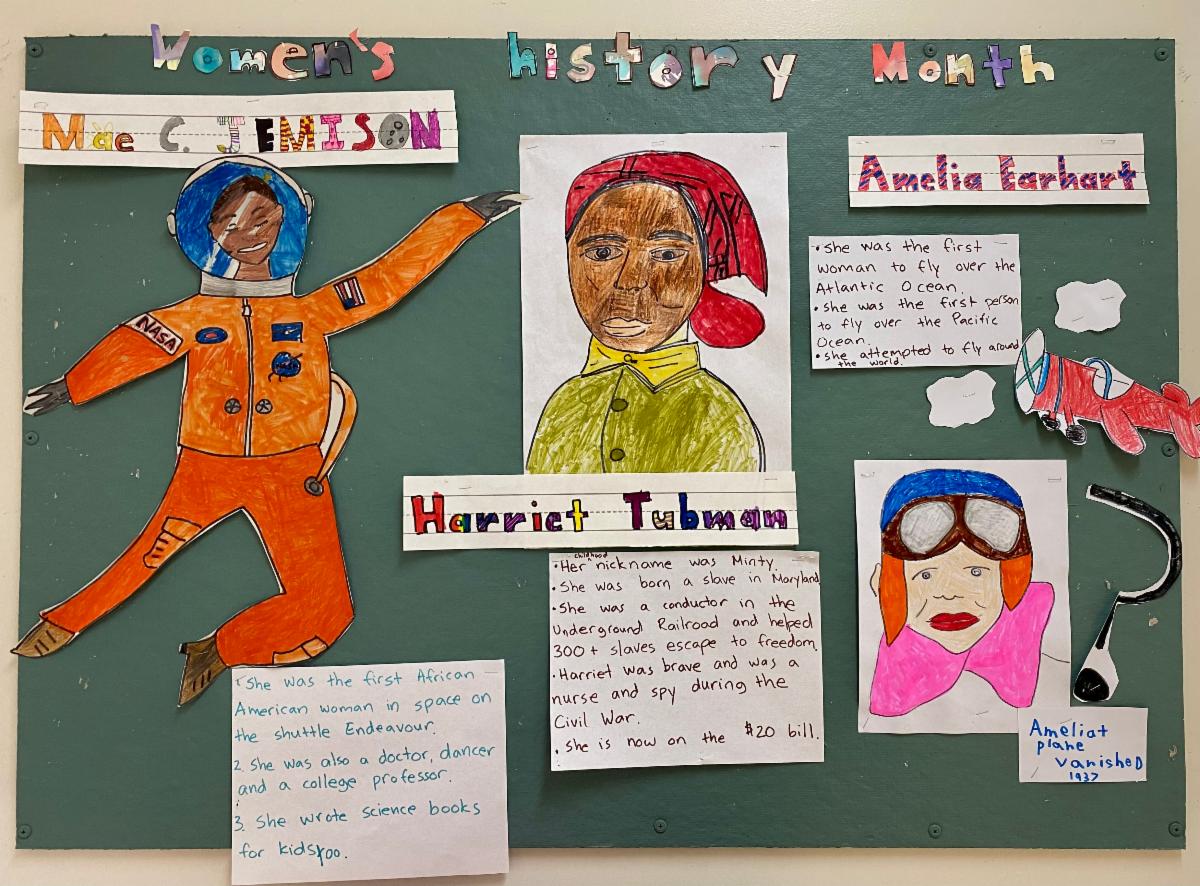 Women's history Month
Mae C. JEMISON
NASA
1. She was the first African
American woman in space on
the shuttle Endeavour.
2. She was also a doctor, dancer
and a college professor.
3. She wrote science books
for kids too.
Harriet Tubman
• Her childhood nickname was Minty.
• She was born a slave in Maryland
• She was a conductor in the
Underground Railroad and helped
300+ slaves escape to freedom.
• Harriet was brave and was a
nurse and spy during the
Civil War.
• She is now on the $20 bill.
Amelia Earhart
• She was the first
woman to fly over the
Atlantic Ocean.
• She was the first person
to fly over the Pacific
Ocean.
• she attempted to fly around
the world.
?
Ameliat
plane
vanisheD
1937